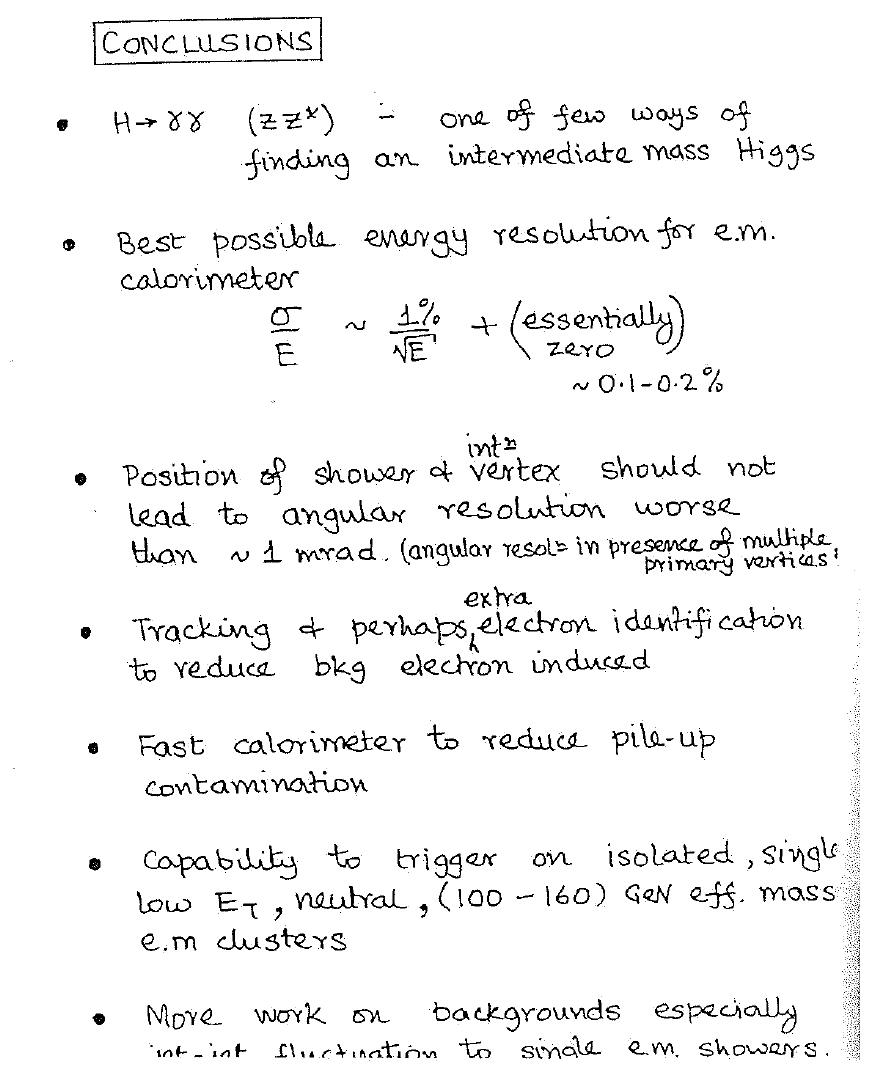 CONCLUSIONS
• H→γγ (ZZ*) - one of few ways of
finding an intermediate mass Higgs
• Best possible energy resolution for e.m.
calorimeter
σ/E ~ 1%/√E + (essentially zero)
~ 0.1-0.2%
• Position of shower & intⁿ vertex should not
lead to angular resolution worse
than ~ 1 mrad. (angular resolⁿ in presence of multiple
primary vertices!
• Tracking & perhaps extra electron identification
to reduce bkg electron induced
• Fast calorimeter to reduce pile-up
contamination
• Capability to trigger on isolated, single
low E_T, neutral, (100 - 160) GeV eff. mass
e.m clusters
• More work on backgrounds especially
fluctuation to single e.m. showers.